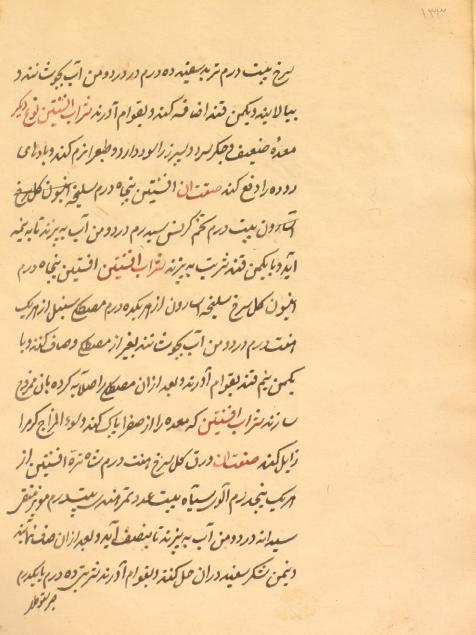 ۱۳۳
سرخ بیست درم تربد سفید ده درم در دو من آب بجوشانند و
بپالایند و یکمن قند اضافه کنند و بقوام آورند شراب افسنتین نوع دیگر
معدهٔ ضعیف و جگر سرد و سپرز را سود دارد و طبع را نرم کند و بادهای
روده را دفع کند صنعت آن افسنتین پنجاه درم سلیخه انیسون گل سرخ
اسارون بیست درم تخم کرفس سیدرم در دو من آب به پزند تا به نیمه
آید و با یکمن قند شربت به پزند شراب افسنتین افسنتین پنجاه درم
انیسون گل سرخ سلیخه اسارون از هریک ده درم مصطکی سنبل از هریک
هفت درم در دو من آب بجوشانند بغیر از مصطکی و صاف کنند و با
یکمن نیم قند بقوام آورند و بعد از آن مصطکی را صلایه کرده بان ممزوج
سازند شراب افسنتین که معده را از صفرا پاک کند و سوء المزاج گرم را
زایل کند صنعت آن ورق گل سرخ هفت درم شاهتره افسنتین از
هریک پنجدرم آلوی سیاه بیست عدد تمر هندی بیست درم مویز منقی
سیدانه در دو من آب به پزند تا بنصف آید و بعد از آن صاف
و نیمن شکر سفید در آن حل کنند و بقوام آورند شربتی ده درم با یکدرم